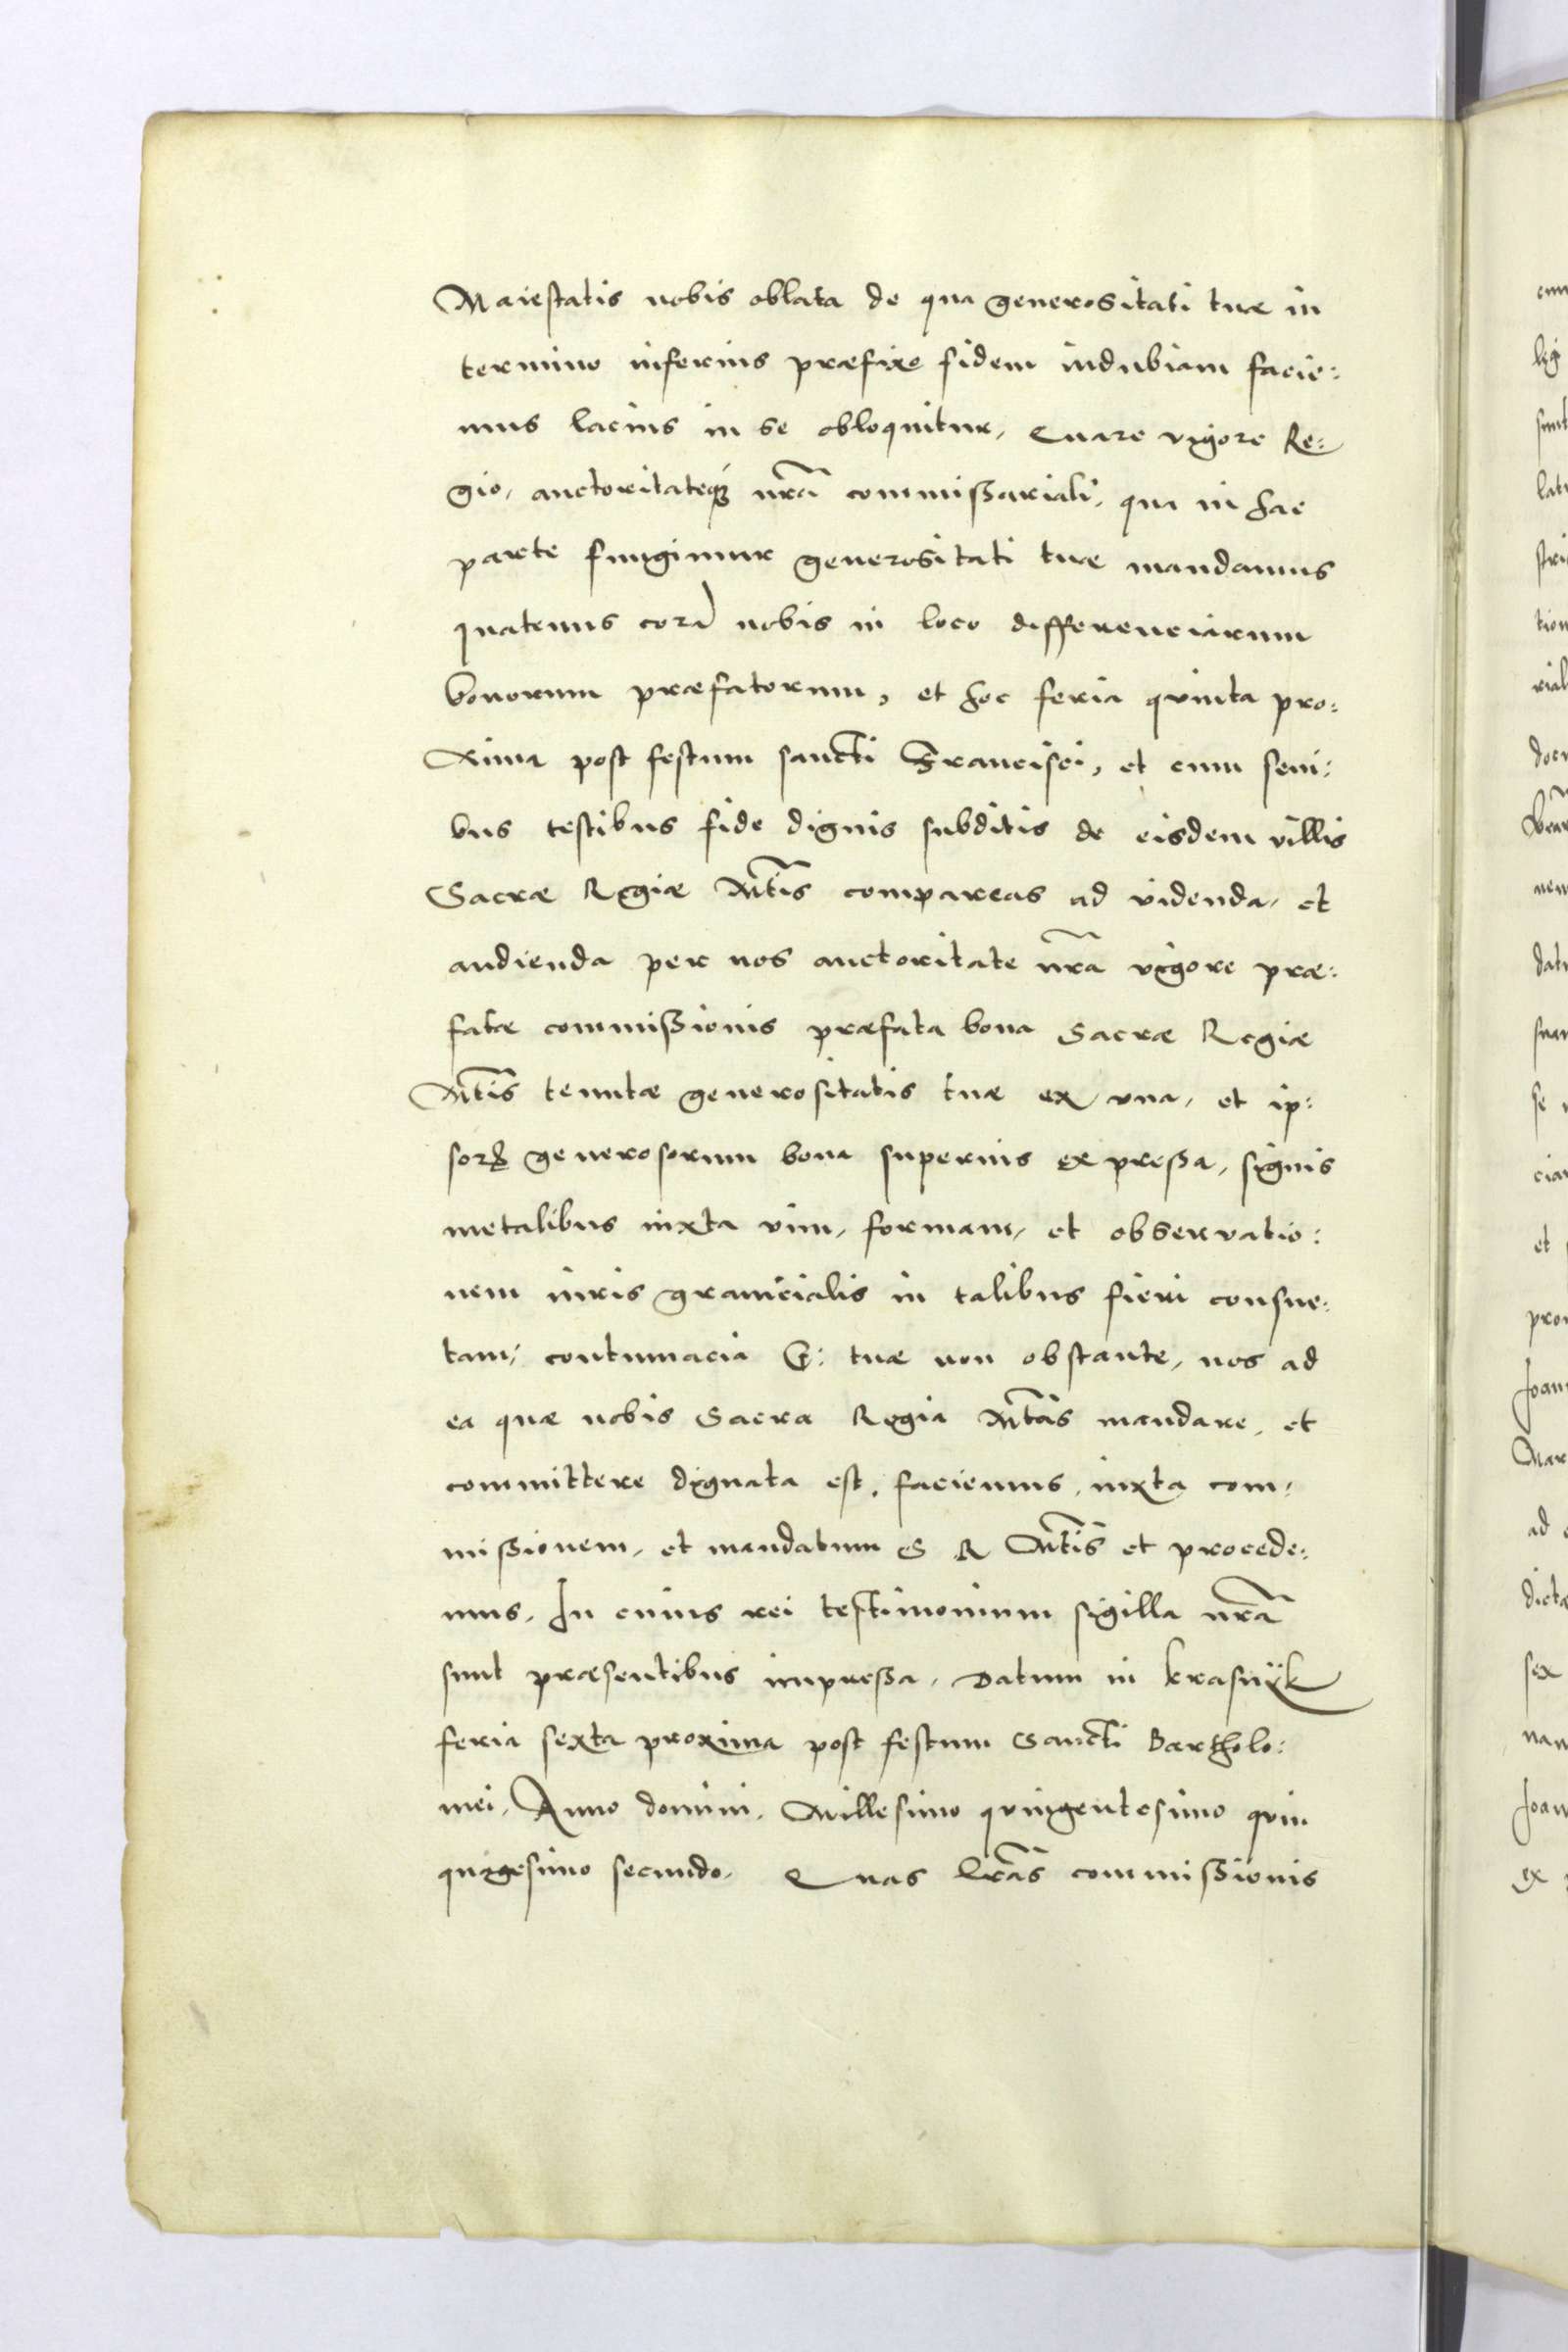 Maiestatis nobis oblata de qua generositati tuæ in
termino inferius præfixo fidem indubiam facie:
mus lacius in se obloquitur, Quare vigore Re:
gio, auctoritateq́ nr̃a commißariali, qua in hac
parte fungimur generositati tuæ mandamus
quatenus corã nobis in loco differenciarum
bonorum præfatorum, et hoc feria quinta pro:
xima post festum sancti Francisci, et cum seni:
bus testibus fide dignis subditis de eisdem villis
Sacræ Regiæ Mt̃is compareas ad videnda, et
audienda per nos auctoritate nr̃a vigore præ:
fatæ commißionis præfata bona Sacræ Regiæ
Mt̃is tenutæ generositatis tuæ ex una, et ip:
soꝝ generosorum bona superius expreßa, signis
metalibus iuxta vim, formam, et observatio:
nem iuris granicialis in talibus fieri consue:
tam, contumacia G: tuæ non obstante, nos ad
ea quæ nobis Sacra Regia Mt̃as mandare, et
committere dignata est, faciemus, iuxta com:
mißionem, et mandatum S R Mt̃is et procede:
mus. In cuius rei testimonium sigilla nr̃a
sunt præsentibus impreßa, Datum in Krasnÿk
feria sexta proxima post festum Sancti Bartholo:
mei, Anno domini, Millesimo quingentesimo quin
quagesimo secundo. Quas lr̃as commißionis